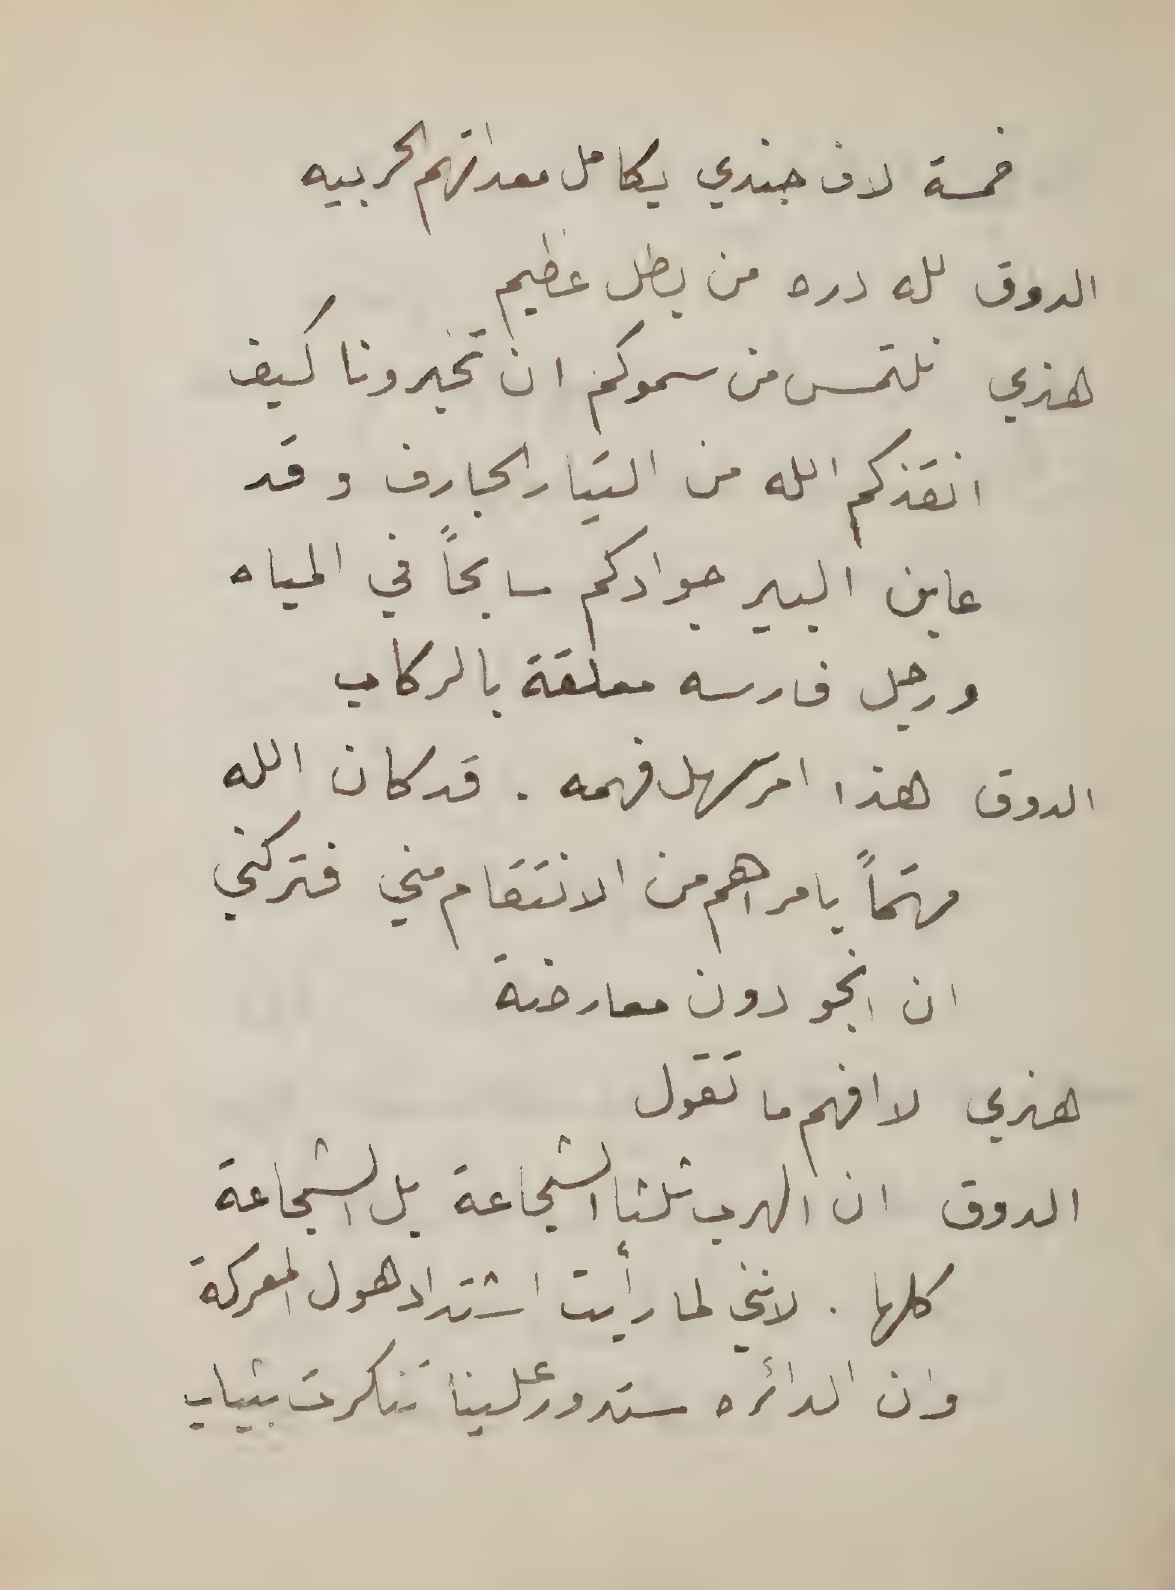 خمسة لاف جندي بكامل معداتهم الحربيه
الدوق لله دره من بطل عظيم
هنري نلتمس من سموكم ان تخبرونا كيف
انقذكم الله من التيار الجارف وقد
عاين البير جوادكم سابحاً في المياه
ورجل فارسه معلقة بالركاب
الدوق هذا امر سهل فهمه . قد كان الله
مهتماً بامر اهم من الانتقام مني فتركني
ان انجو دون معارضة
هنري لا افهم ما تقول
الدوق ان الهرب ثلثا الشجاعة بل الشجاعة
كلها . لانني لما رأيت اشتداد هول المعركة
وان الدائره ستدور علينا تنكرت بثياب